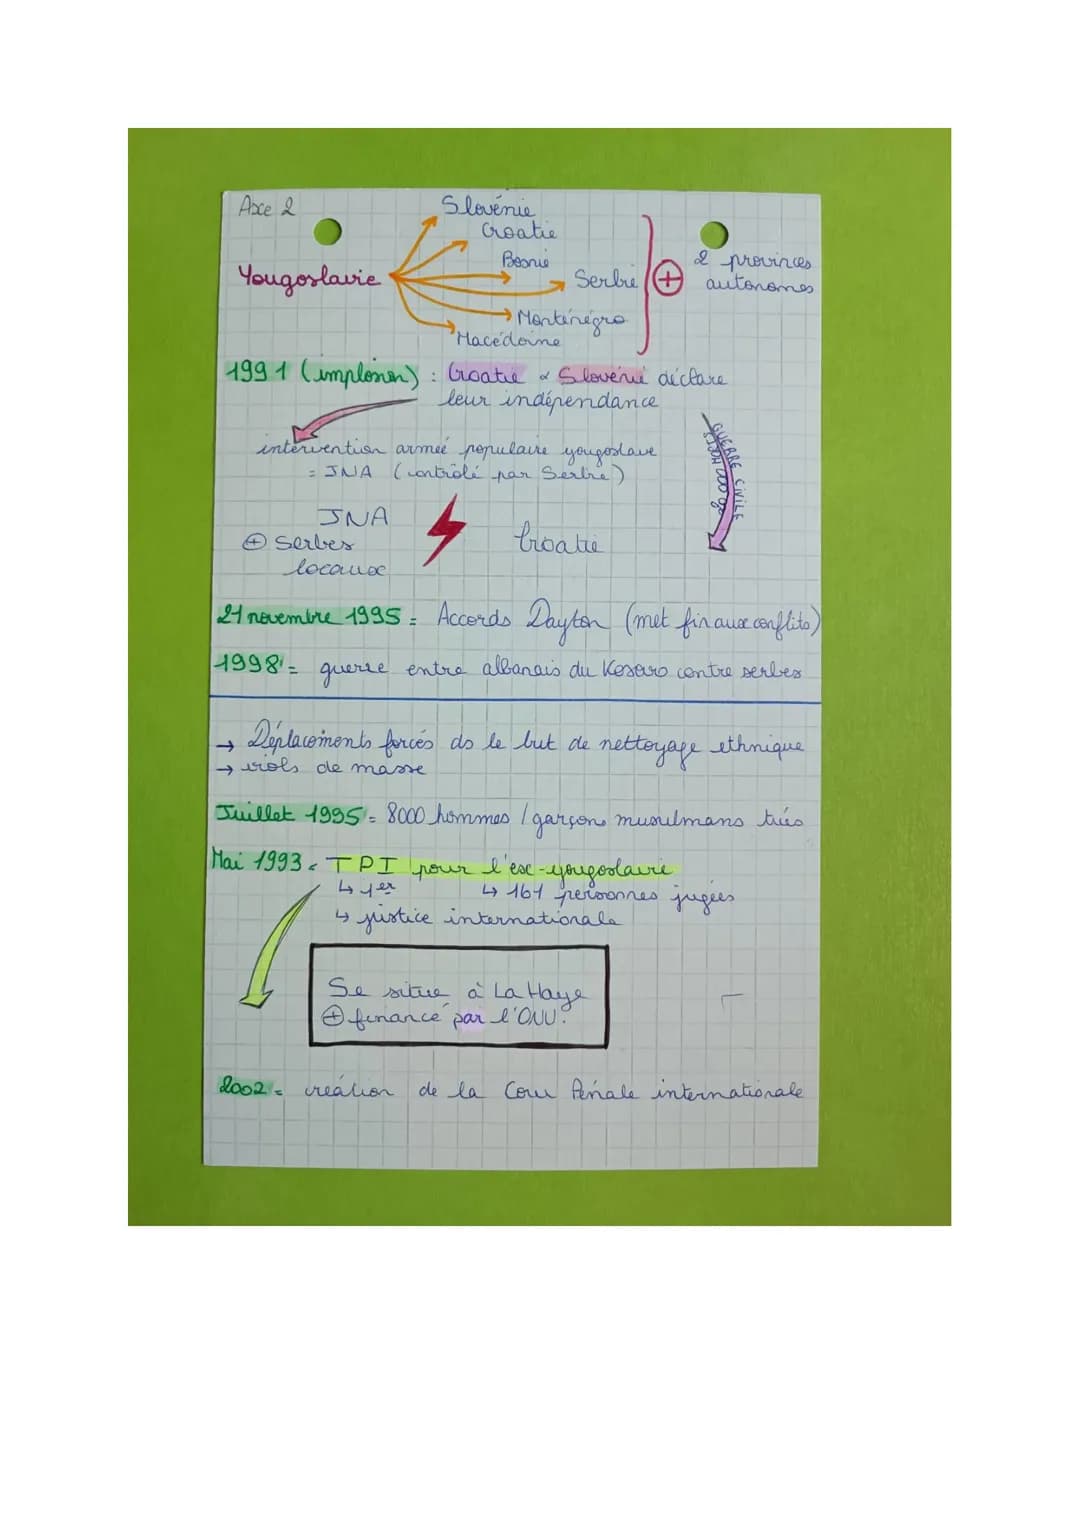 Axe 2
Slovénie
Croatie
Bosnie
Yougoslavie
Serbie
Monténégro
Macédoine
⊕ 2 provinces
autonomes
1991 (implosion) : Croatie & Slovénie déclare
leur indépendance
intervention armée populaire yougoslave
= JNA (contrôlé par Serbie)
GUERRE CIVILE
JNA
⊕ Serbes
locaux
Croatie
21 novembre 1995 = Accords Dayton (met fin aux conflits)
1998 = guerre entre albanais du Kosovo contre serbes
→ Déplacements forcés ds le but de nettoyage ethnique
→ viols de masse
Juillet 1995 = 8000 hommes / garçons musulmans tués
Mai 1993 = TPI pour l'ex-yougoslavie
↳ 1er ↳ 161 personnes jugées
↳ justice internationale
Se situe à La Haye
⊕ financé par l'ONU.
2002 = création de la Cour Pénale internationale